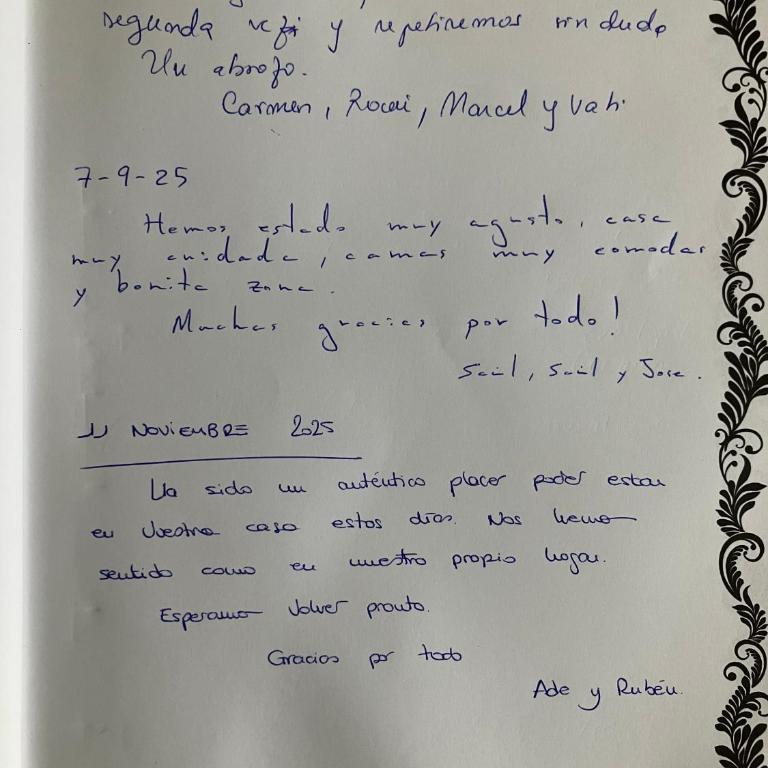 segunda vez y repetiremos sin duda
Un abrazo.
Carmen, Rocai, Marcel y
7-9-25
Hemos estado muy agusto, casa
muy cuidada, camas muy comodas
y bonita zona.
Muchas gracias por todo!
Saúl, Saúl y Jose.
11 NOVIEMBRE 2025
Ha sido un auténtico placer poder estar
en vuestra casa estos días. Nos hemos
sentido como en nuestro propio hogar.
Esperamos volver pronto.
Gracias por todo
Ade y Rubén.